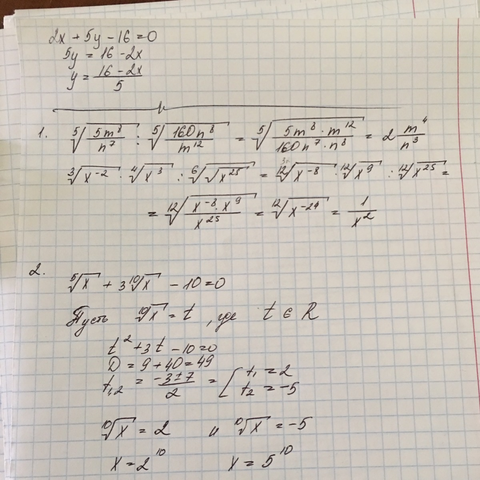 2x + 5y - 16 = 0
5y = 16 - 2x
y = (16 - 2x)/5
1. ⁵√(5m⁸/n⁷) : ⁵√(160n⁸/m¹²) = ⁵√(5m⁸ · m¹²/160n⁷ · n⁸) = 2 m⁴/n³
³√x⁻² · ⁴√x³ : ⁶√√x²⁵ = ¹²√x⁻⁸ · ¹²√x⁹ : ¹²√x²⁵ =
= ¹²√(x⁻⁸ · x⁹/x²⁵) = ¹²√x⁻²⁴ = 1/x²
2.
⁵√x + 3 ¹⁰√x - 10 = 0
Пусть ¹⁰√x = t, где t ∈ R
t² + 3t - 10 = 0
D = 9 + 40 = 49
t₁,₂ = (-3 ± 7)/2 = [ t₁ = 2
t₂ = -5
¹⁰√x = 2 и ¹⁰√x = -5
x = 2¹⁰ x = 5¹⁰